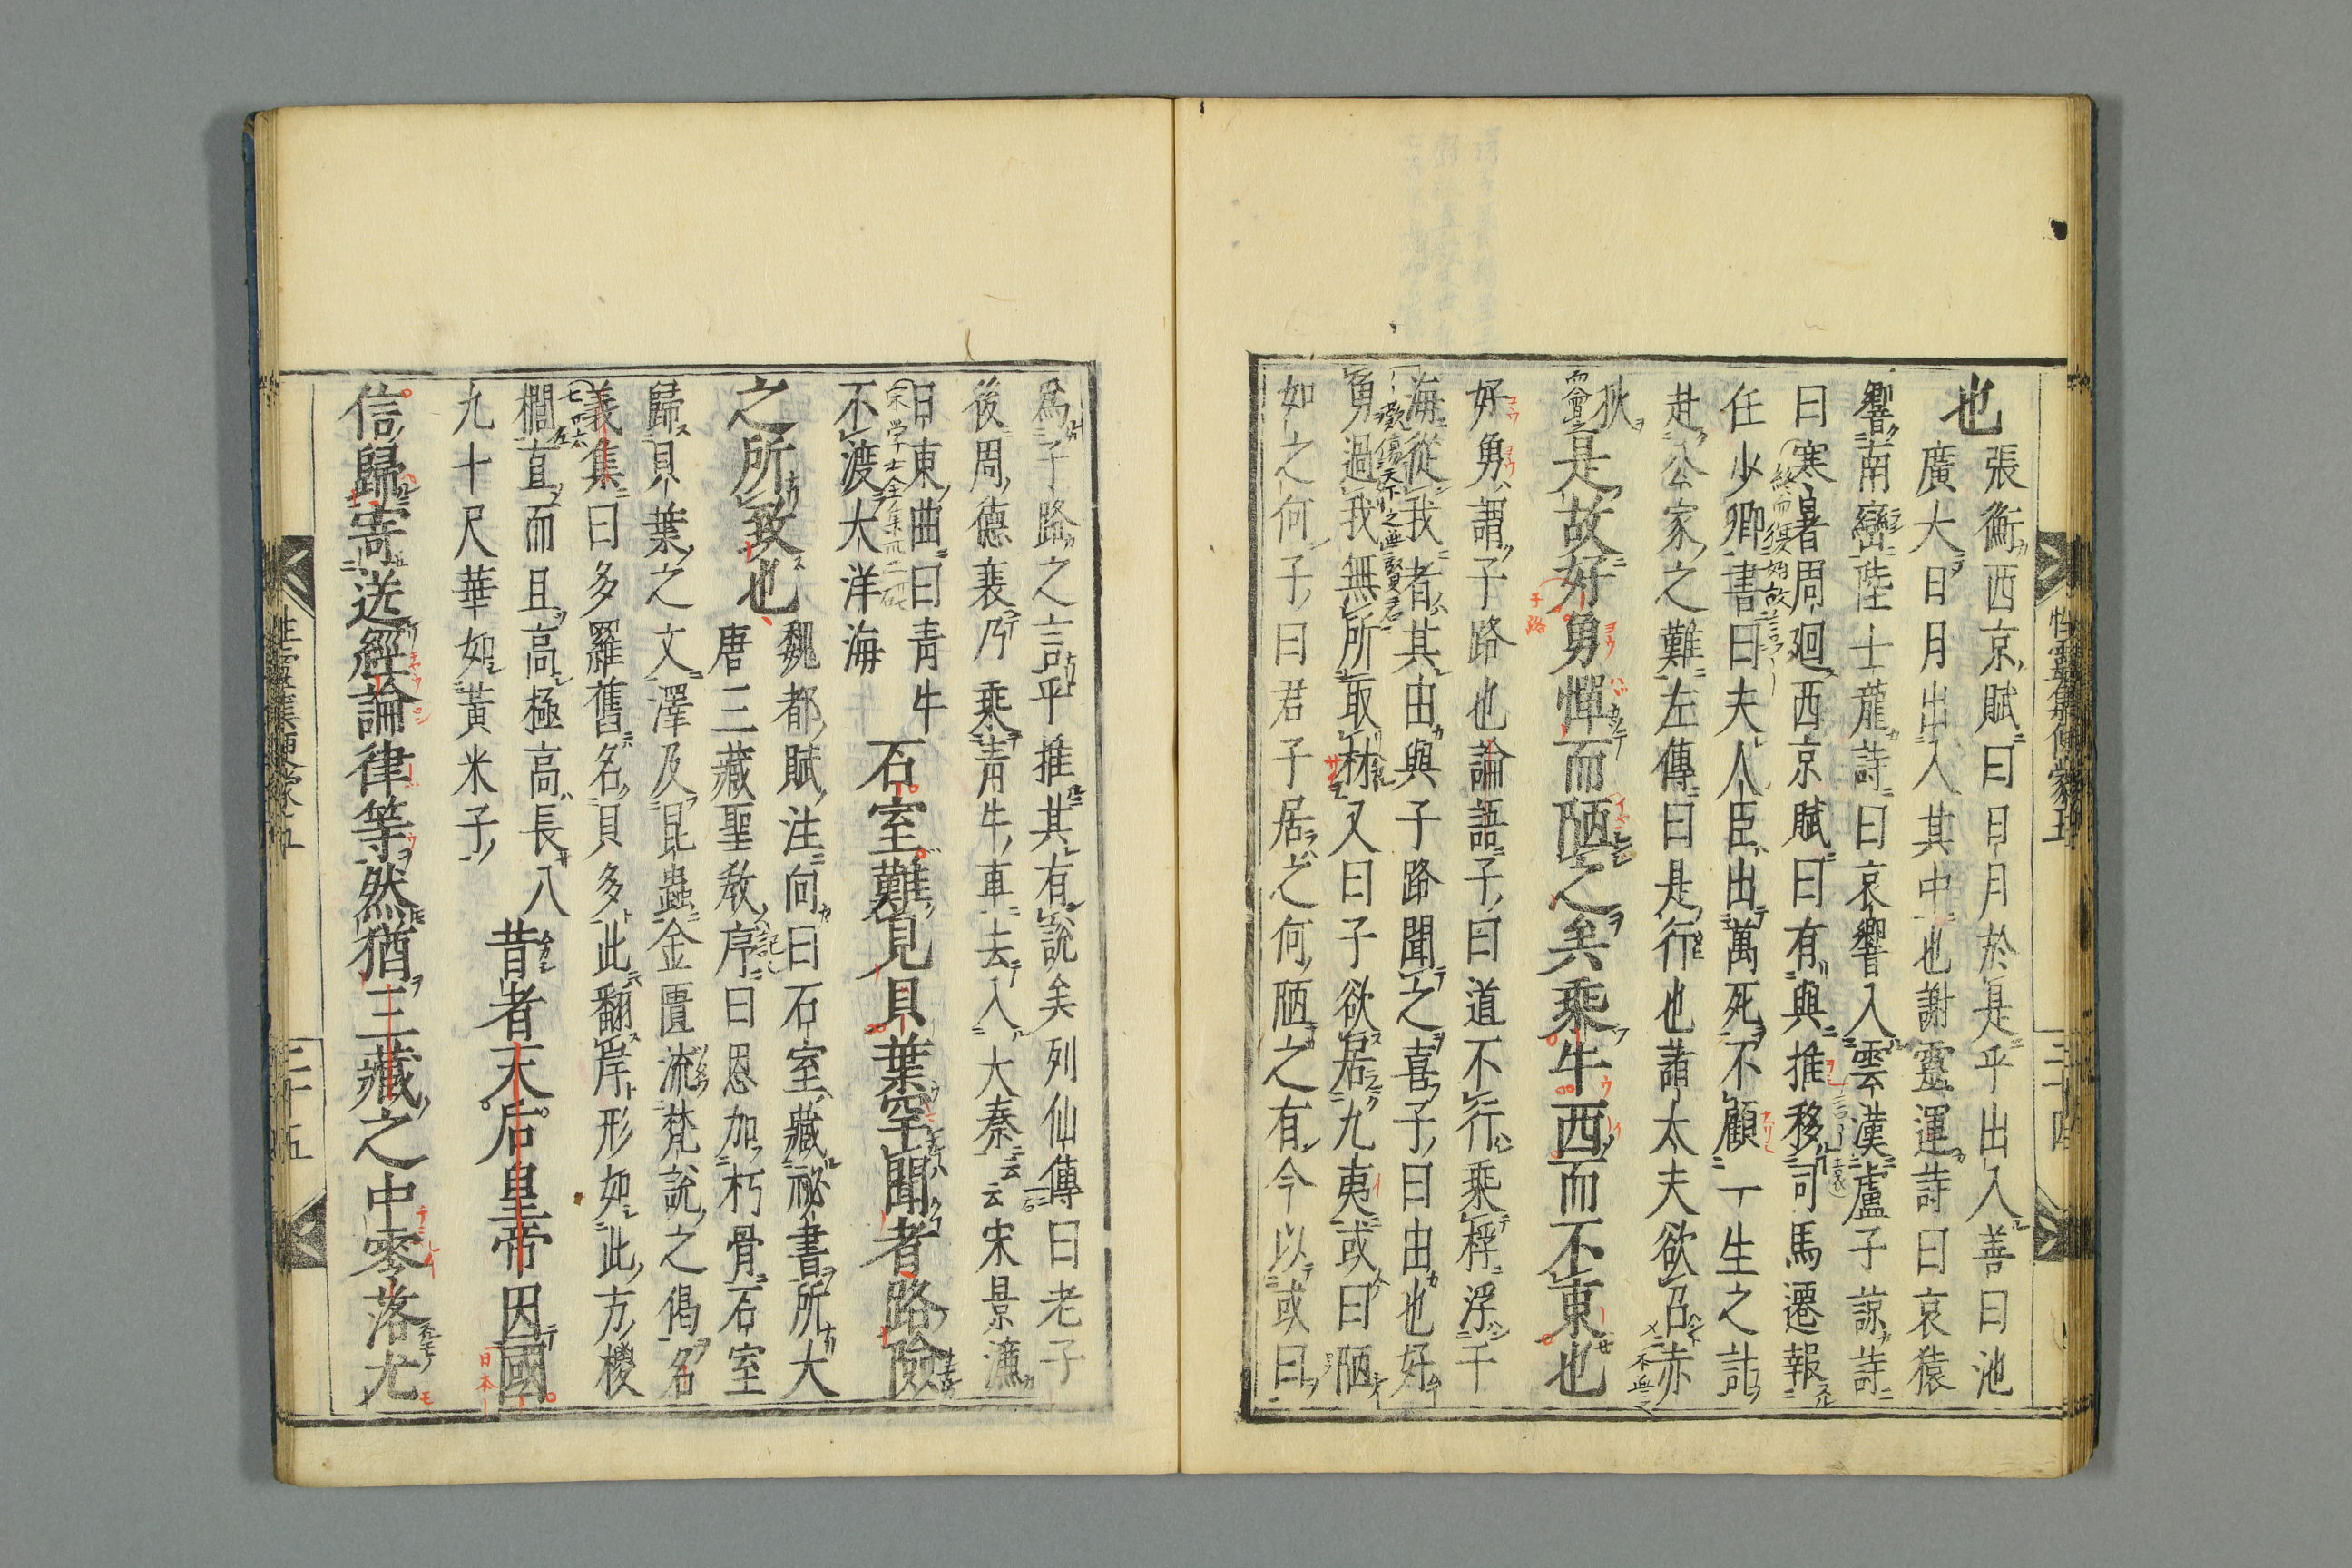 也
張衡西京賦曰日月於是乎出入善曰池
廣大日月出入其中也謝靈運詩曰哀猿
響南巒陸士龍詩曰哀響入雲漢盧子諒詩
曰寒暑周廻西京賦曰有與推移司馬遷報
任少卿書曰夫人臣出萬死不顧一生之計
赴公家之難左傳曰是行也諸大夫欲召赤
狄
是故好勇憚而陋之矣乘牛西而不東也
好勇謂子路也論語子曰道不行乘桴浮于
海從我者其由與子路聞之喜子曰由也好
勇過我無所取材又曰子欲居九夷或曰陋
如之何子曰君子居之何陋之有今以或曰
爲子路之言乎推其有說矣列仙傳曰老子
後周德衰乃乘青牛車去入大秦云云宋景濂
日東曲曰青牛
不渡大洋海
石室難見貝葉罕聞者路險
之所致也
魏都賦注向曰石室藏祕書所大
唐三藏聖敎序曰恩加朽骨石室
歸貝葉之文澤及昆蟲金匱流梵說之偈名
義集曰多羅舊名貝多此翻岸形如此方椶
櫚直而且高極高長八
九十尺華如黃米子
昔者天后皇帝因國
信歸寄送經論律等然猶三藏之中零落尤